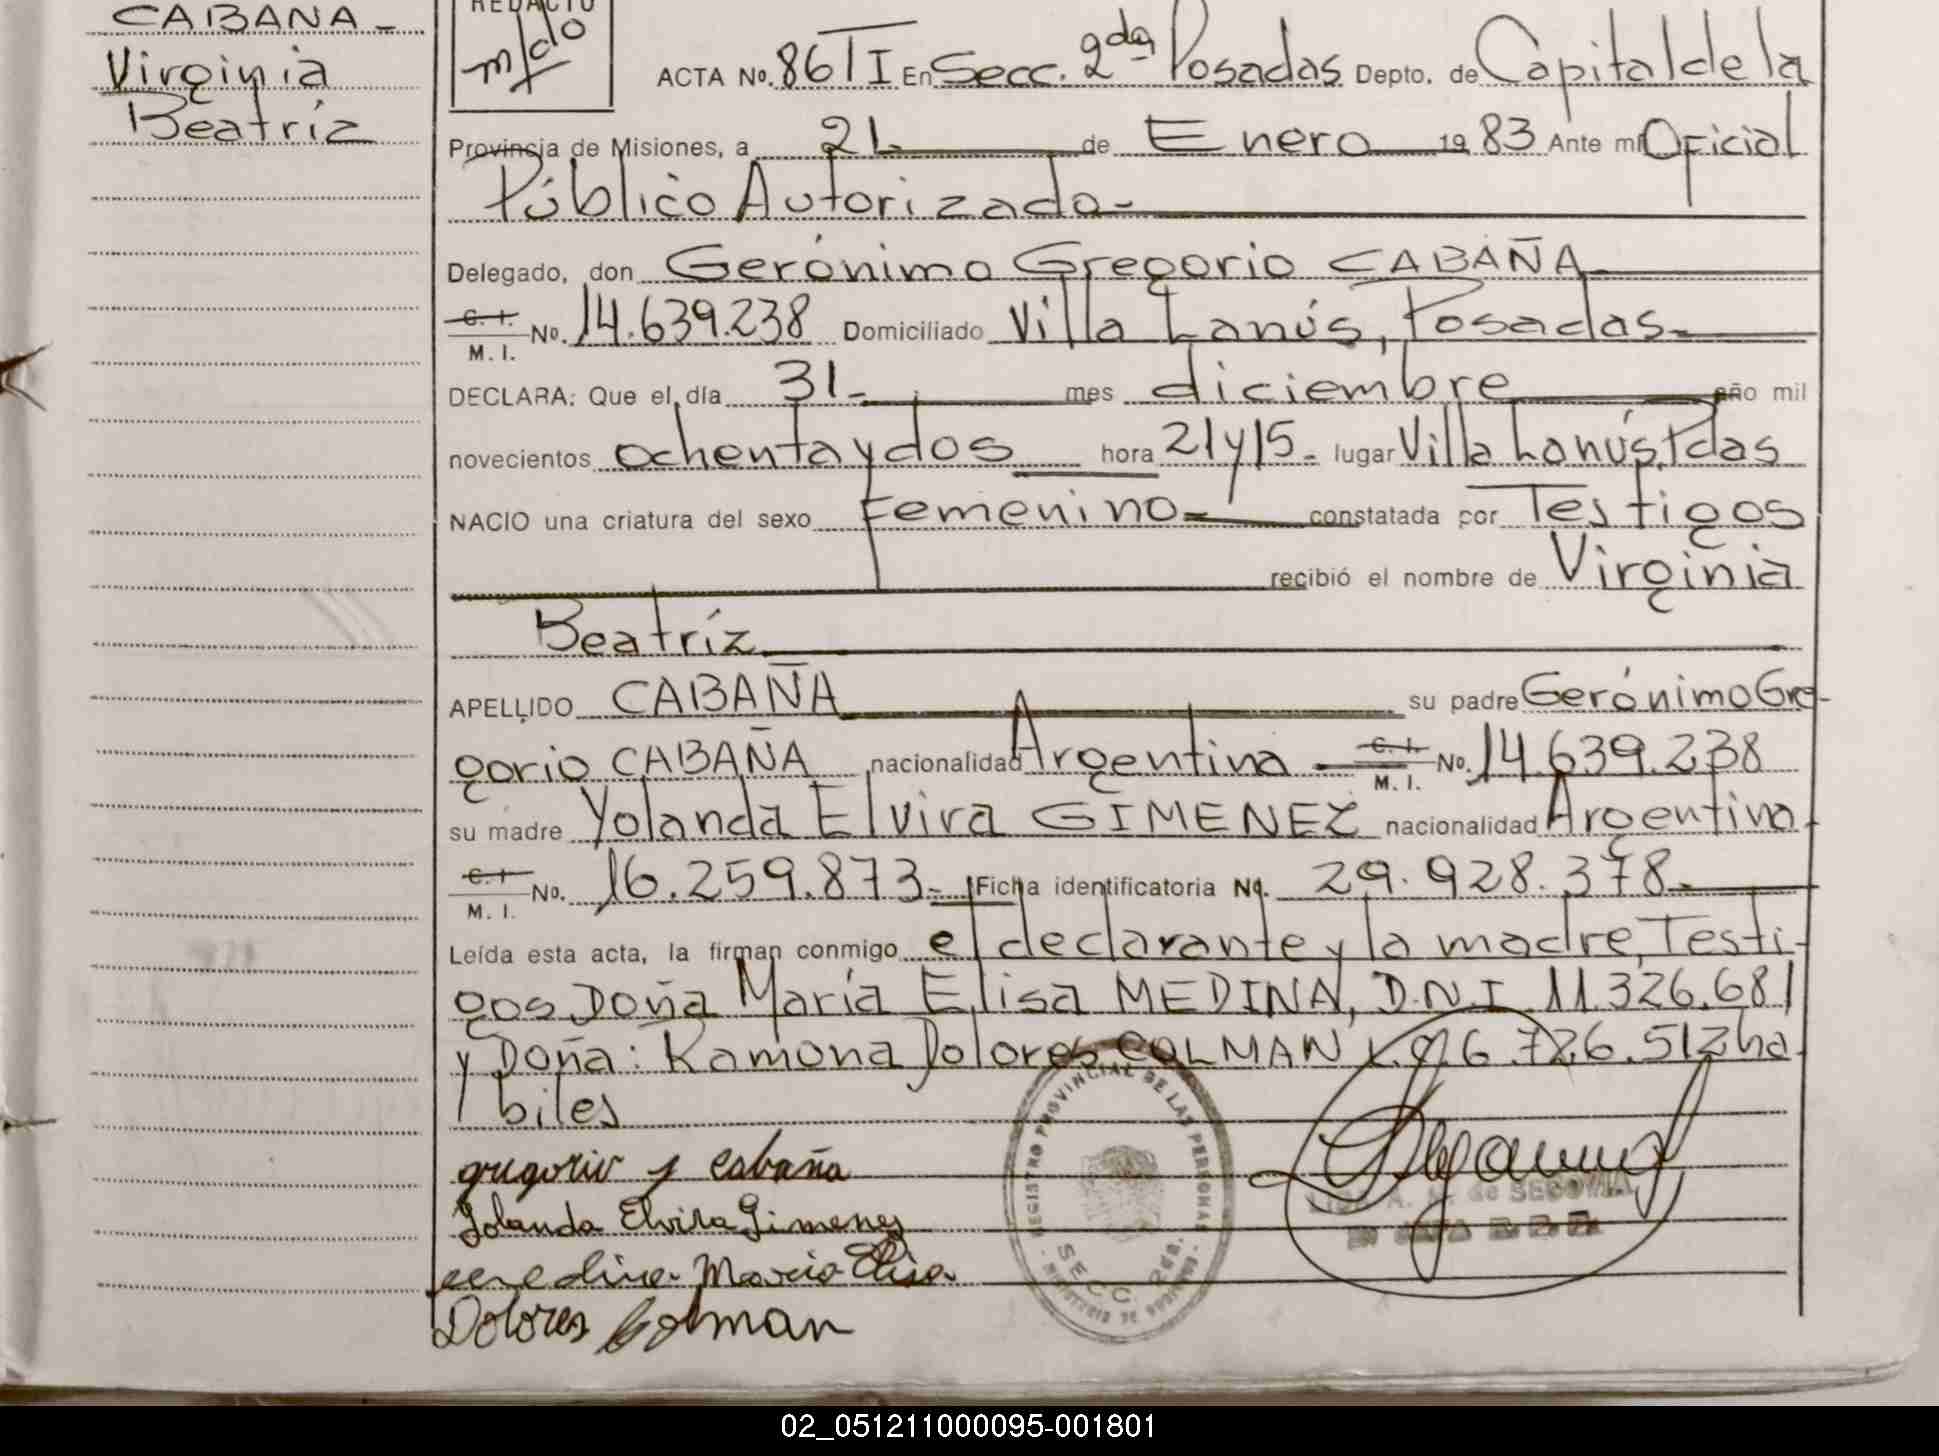 CABAÑA-
Virginia
Beatríz
REDACTO
ACTA No. 86 T I En Secc. 2da Posadas Depto. de Capital de la
Provincia de Misiones, a 21- de Enero 19 83 Ante mi Oficial
Público Autorizado-
Delegado, don Gerónimo Gregorio CABAÑA
C. I. No. 14.639.238 Domiciliado Villa Lanús, Posadas-
M. I.
DECLARA: Que el día 31- mes diciembre año mil
novecientos ochenta y dos hora 21 y 15- lugar Villa Lanús, Pdas
NACIO una criatura del sexo Femenino- constatada por Testigos
recibió el nombre de Virginia
Beatríz
APELLIDO CABAÑA su padre Gerónimo Gre-
gorio CABAÑA nacionalidad Argentina C. I. No. 14.639.238
M. I.
su madre Yolanda Elvira GIMENEZ nacionalidad Argentina
C. I No. 16.259.873- Ficha identificatoria No. 29.928.378-
M. I.
Leída esta acta, la firman conmigo el declarante y la madre, Testi-
gos Doña María Elisa MEDINA, D.N.I 11.326.681
y Doña: Ramona Dolores COLMAN L.C. 6.726.512 ha
biles
gregorio j cabaña
Yolanda Elvira Gimenez
medina Maria Elisa
Dolores Colman
REGISTRO PROVINCIAL DE LAS PERSONAS
SECC 2da.
de SEGOVIA
02_051211000095-001801